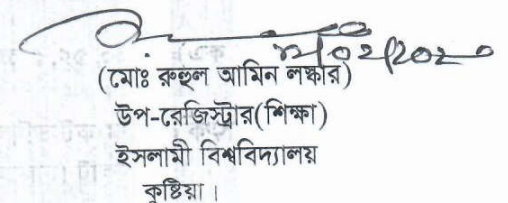 (মোঃ রুহুল আমিন লষ্কার)
উপ-রেজিস্ট্রার(শিক্ষা)
ইসলামী বিশ্ববিদ্যালয়
কুষ্টিয়া।